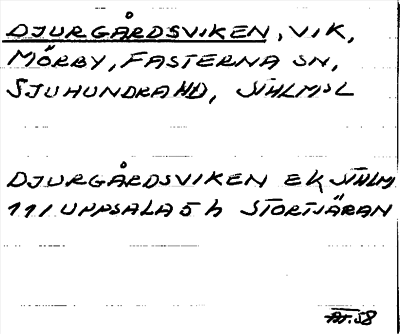 DJURGÅRDSVIKEN, VIK,
MÖRBY, FASTERNA SN,
SJUHUNDRA HD, STHLMSL
DJURGÅRDSVIKEN EK STHLM
111 UPPSALA 5 h STORTJÄRAN
Ar. 58